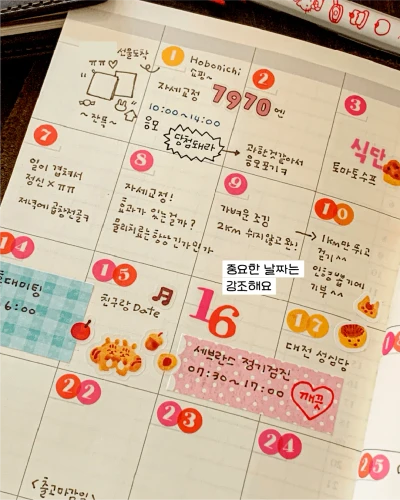 선물도착
ㅠㅠ♡
~잔뜩~
1
Hobonichi
쇼핑~
7970엔
자세교정
10:00~14:00
응모
당첨돼라
2
과한것같아서
응모포기ㅋ
3
식단
토마토수프
7
일이 겹쳐서
정신 X ㅠㅠ
저녁에곱창전골ㅋ
8
자세교정!
효과가 있는걸까?
물리치료는항상긴가민가
9
가벼운 조깅
2KM 쉬지않고 완!
10
1km만 뛰고
걷기 ^^
인형뽑기에
기부 ^^
중요한 날짜는
강조해요
14
미팅
6:00
15
친구랑 Date
16
세브란스 정기검진
07:30~17:00
깨끗
17
대전 성심당
22
23
24
25